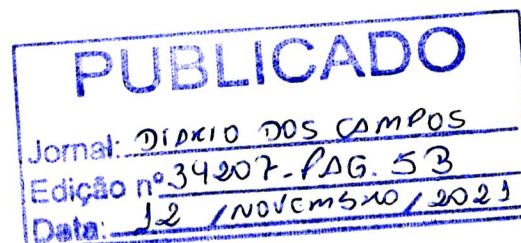 PUBLICADO
Jornal: DIÁRIO DOS CAMPOS
Edição nº 34207-PÁG. 5B
Data: 12 / NOVEMBRO / 2021